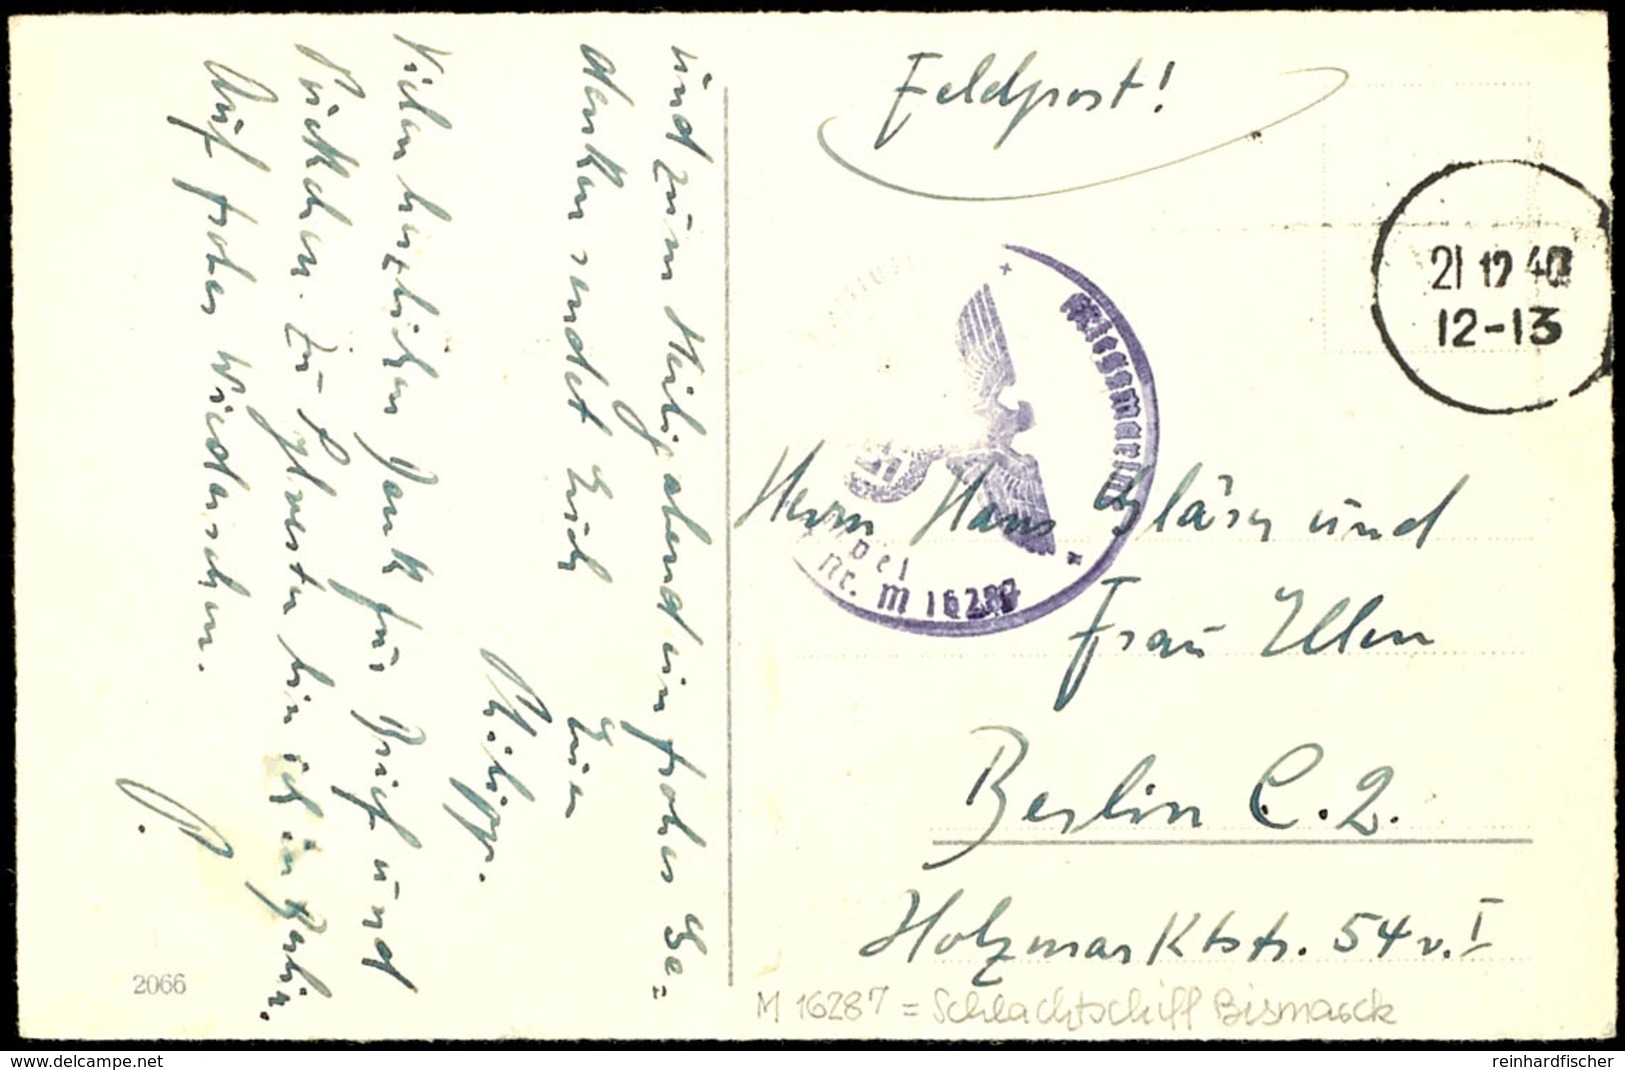 und zum Heiligabend ein frohes Ge=
denken sendet Euch
Euer
Philipp.
Vielen herzlichen Dank für Brief und
Päckchen. Zu Sylvester bin ich in Berlin.
Auf frohes Wiedersehen.
P.
2066
Feldpost!
21 12 40
12-13
Kriegsmarine
pel
Nr. M 16287
Herrn Hans Gläser und
Frau Ellen
Berlin C. 2.
Holzmarktstr. 54 v. I
M 16287 = Schlachtschiff Bismarck
www.delcampe.net
reinhardfischer